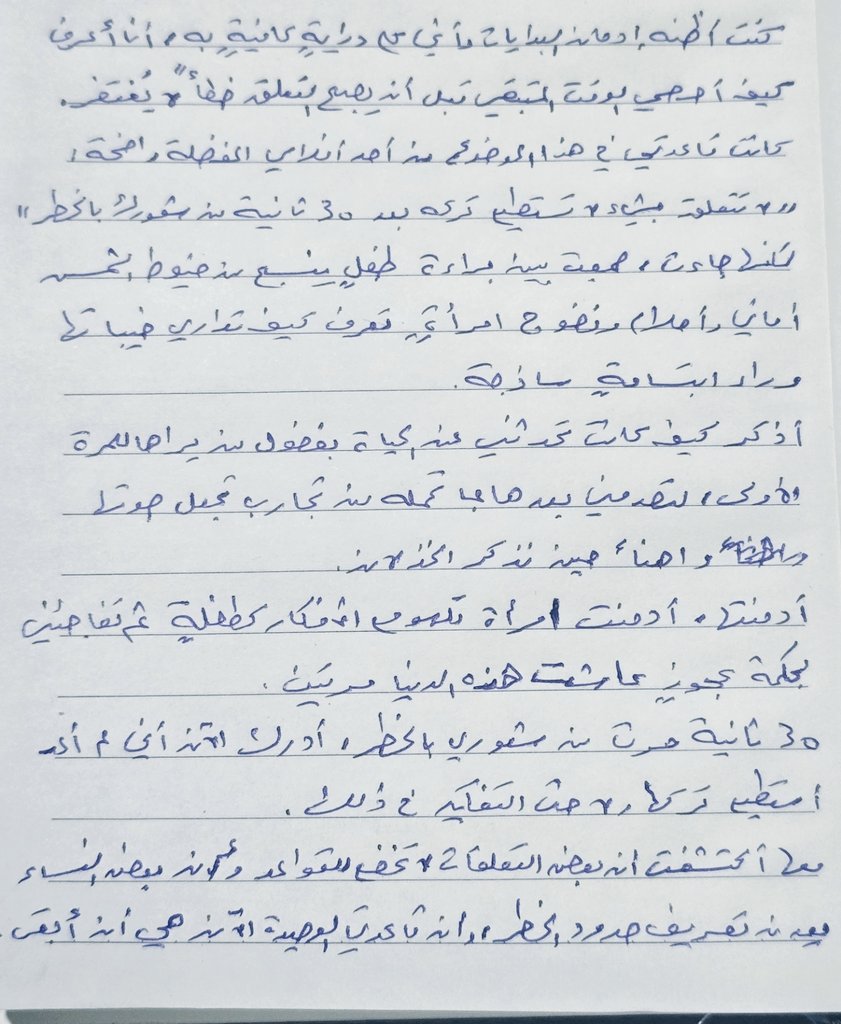 كنت أظنه إدمان البدايات وأني على درايةٍ كافيةٍ به، أنا أعرف
كيف أحصي الوقت المتبقي قبل أن يصبح التعلق خطأً لا يُغتفر.
كانت قاعدتي في هذا الموضوع من أحد أفلامي المفضلة واضحة:
"لا تتعلق بشيء لا تستطيع تركه بعد 30 ثانية من شعورك بالخطر"
لكنها جاءت، جمعت بين براءة طفلٍ ينسج من خيوط الشمس
أماني وأحلام ونضوج امرأةٍ تعرف كيف تداري خيباتها
وراء ابتسامةٍ ساذجة.
أذكر كيف كانت تحدثني عن الحياة بفضول من يراها للمرة
الأولى، لتصدمني بعدها بما تحمله من تجارب تجعل صوتها
واهناً حين تذكر الخذلان.
أدمنتها، أدمنت امرأة تلهو مع الأفكار كطفلةٍ ثم تفاجئني
بحكمة عجوزٍ عاشت هذه الدنيا مرتين.
30 ثانية مرت من شعوري بالخطر، أدرك الآن أني لم أعد
أستطيع تركها، لا حتى التفكير في ذلك.
معها أكتشفت أن بعض التعلقات لا تخضع للقواعد وأن بعض النساء
يعدن تعريف حدود الخطر، وأن قاعدتي الوحيدة الآن هي أن أبقى.